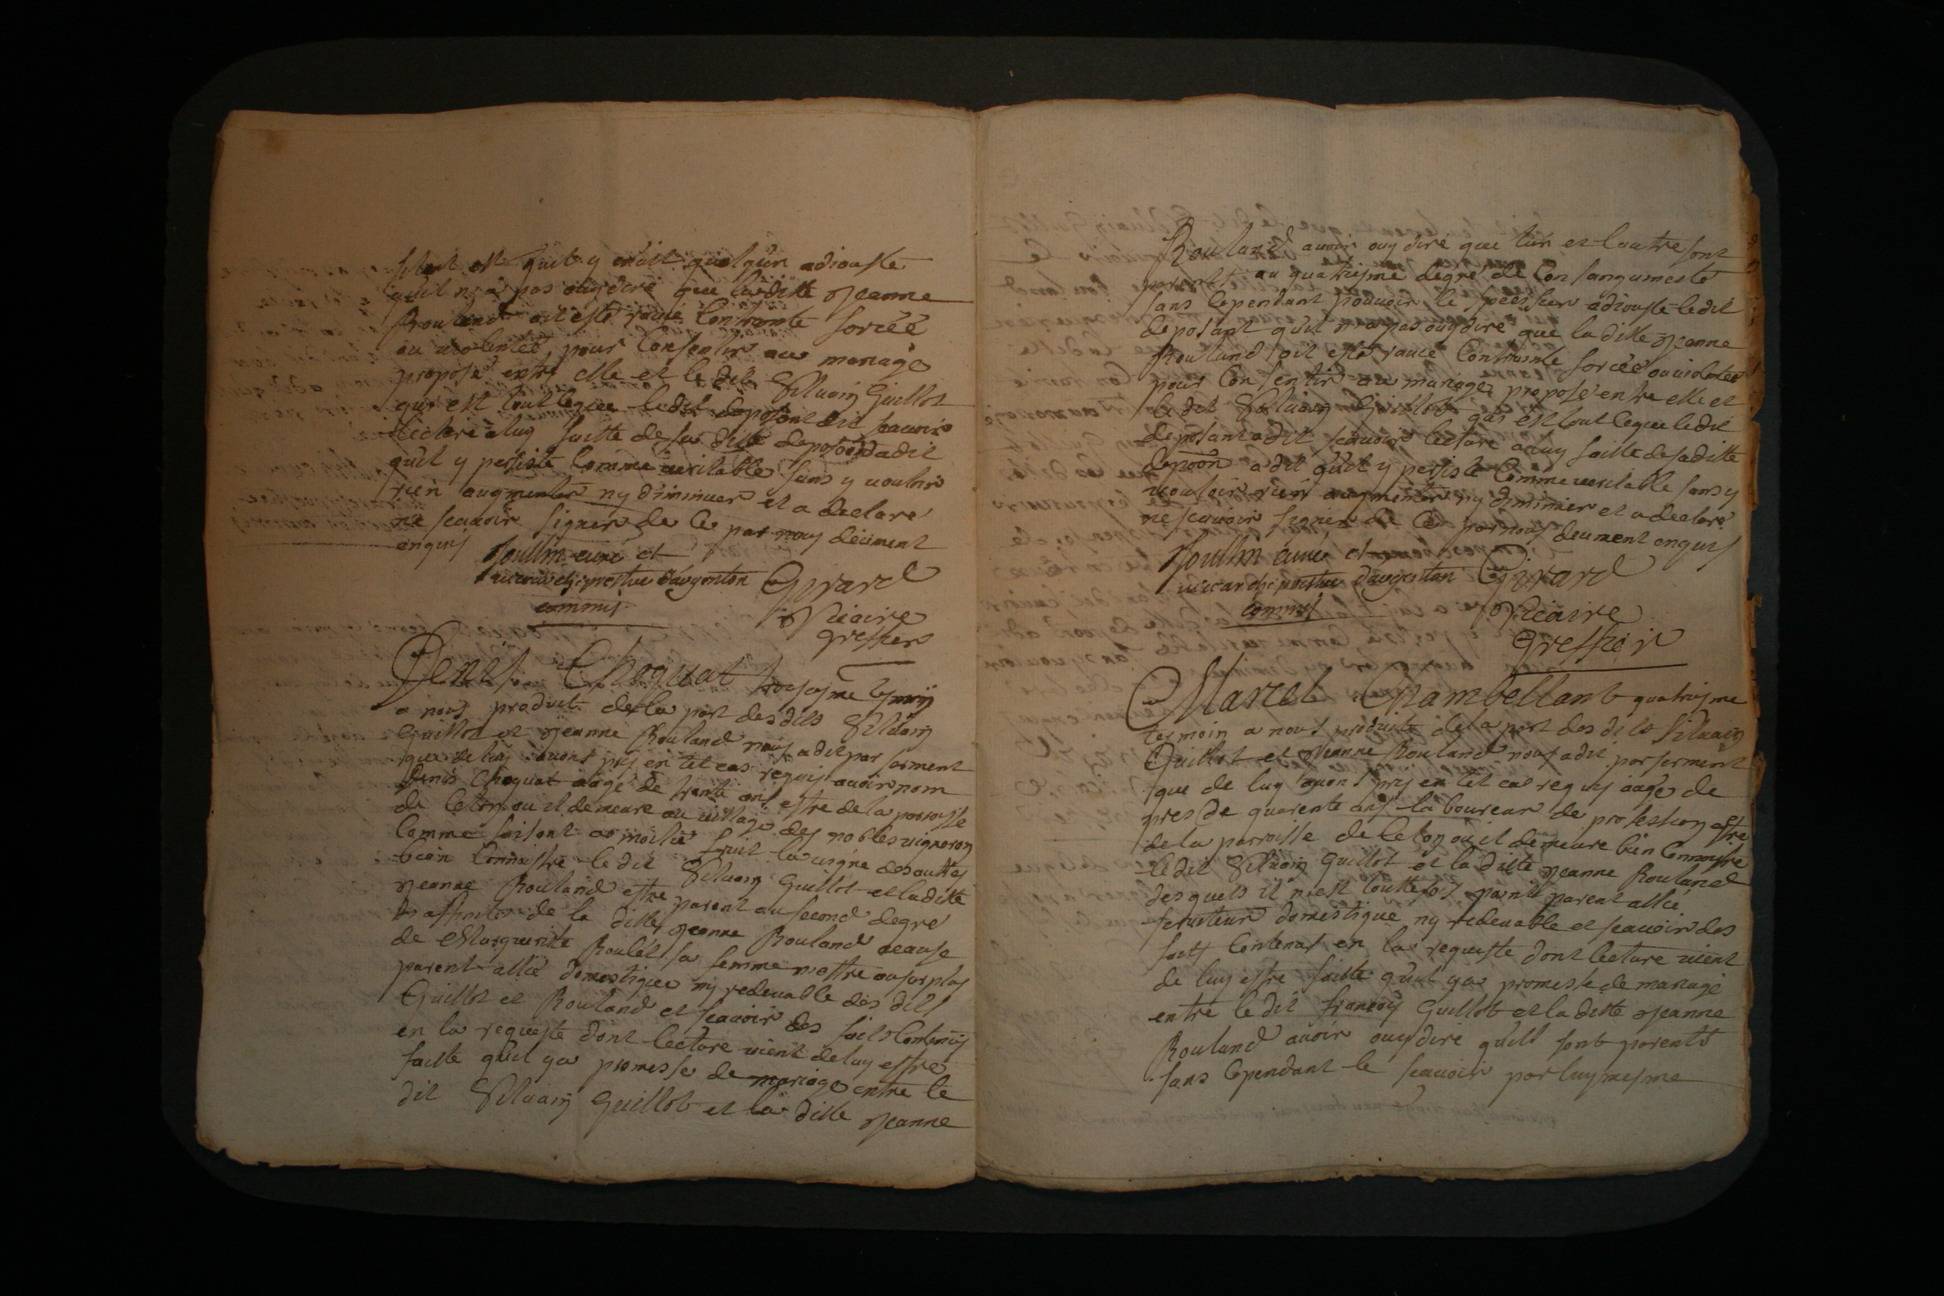 sitant est quil y en ait quelqu'un adiouste
quil n'a pas ouy dire que la ditte Jeanne
Rouland ait esté ravie Contrainte forcéé
ou violentéé, pour Consentir au mariage
proposé entre elle et le dit Silvain Guillot
qui est tout ceque le dit deposant dit scauoir
lecture a luy faitte de sa ditte deposon a dit
quil y persiste Comme veritable sans y vouloir
rien augmenter ny diminuer et a declaré
ne scauoir signer de ce par nous deument
enquis
Joullin curé et
vicaire archiprestre d'argenton Girard
commis
Vicaire
greffier
Denis Choquat troisiesme tesmoin
a nous produit de la part des dits Silvain
Guillot et Jeanne Rouland nous a dit par serment
que de luy avons pris en tel cas requis avoir nom
Denis Choquat aagé de trente ans estre de la parroisse
de Celon ou il demeure au village des nobles vigneron
Comme faisant a moitié fruit la vigne
bien Connoistre le dit Silvain Guillot et la ditte
Jeanne Rouland estre parent au second degré
d'affinité de la ditte Jeanne Rouland acause
de Marguerite Roulet sa femme n'estre au surplus
parent allié domestique ny redevable des dits
Guillot et Rouland et scavoir des faits Contenus
en la requeste dont lecture vient de luy estre
faitte quil y a promesse de mariage entre le
dit Silvain Guillot et la ditte Jeanne
Rouland avoir ouy dire que l'un et l'autre sont
parents au quatriesme degré de Consanguinité
sans Cependant pouvoir le specifier adiouste le dit
deposant qu'il n'a pas ouy dire que la ditte Jeanne
Rouland ait esté ravie Contrainte forcéé ou violentéé
pour Consentir au mariage proposé entre elle et
le dit Silvain Guillot qui est tout ceque le dit
deposant a dit scavoir lecture a luy faitte de sa ditte
depoon a dit quil y persiste Comme veritable sans y
vouloir rien augmenter ny diminuer et a declaré
ne scavoir signer de ce par nous deument enquis
Joullin curé et
vicaire archiprestre d'argenton Girard
commis
Vicaire
Greffier
Marcel Chambellant quatriesme
tesmoin a nous produite de la part des dits Silvain
Guillot et Jeanne Rouland nous a dit par serment
que de luy avons pris en tel cas requis aagé de
pres de quarente ans laboureur de profession estre
de la parroisse de Celon ou il demeure bien Connoistre
le dit Silvain Guillot et la ditte Jeanne Rouland
desquels il n'est touttefois parent allié
serviteur domestique ny redevable et scavoir des
faits Contenus en la requeste dont lecture vient
de luy estre faitte quil y a promesse de mariage
entre le dit françois Guillot et la ditte Jeanne
Rouland avoir ouy dire quils sont parents
sans Cependant le scavoir par luy mesme